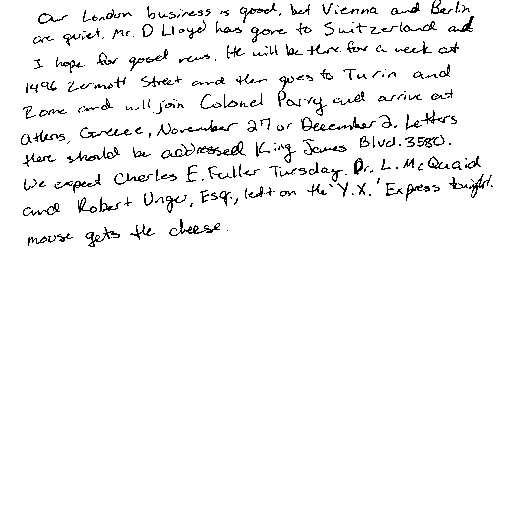 Our London business is good, but Vienna and Berlin
are quiet. Mr. D Lloyd has gone to Switzerland and
I hope for good news. He will be there for a week at
1496 Zermott Street and then goes to Turin and
Rome and will join Colonel Parry and arrive at
Athens, Greece, November 27 or December 2. Letters
there should be addressed King James Blvd. 3580.
We expect Charles E. Fuller Tuesday. Dr. L. McQuaid
and Robert Unger, Esq., left on the 'Y.X.' Express tonight.
mouse gets the cheese.